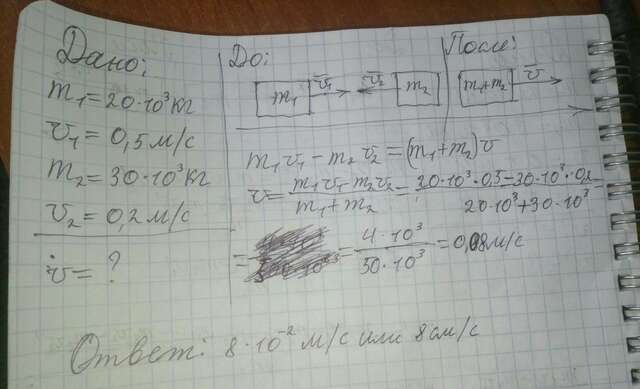 Дано:
m₁=20·10³кг
v₁=0,5м/с
m₂=30·10³кг
v₂=0,2м/с
v=?
До:
m₁ v̄₁ v̄₂ m₂
После:
m₁+m₂ v̄
m₁v₁-m₂v₂=(m₁+m₂)v
v=(m₁v₁-m₂v₂)/(m₁+m₂)=(20·10³·0,5-30·10³·0,2)/(20·10³+30·10³)=
==(4·10³)/(50·10³)=0,08м/с
Ответ: 8·10⁻² м/с или 8см/с